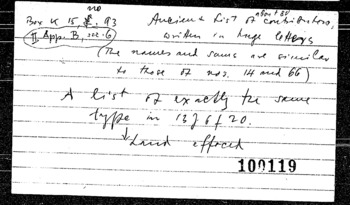 no
Box K 15, f. 93
II App. B, sec. 6
Ancient List of about 30 contributors,
written in huge letters
(The names and sums are similar
to those of nos. 14 and 66)
A list of exactly the same
type in 13 J 6 f 20.
↓ Land effaced
100119